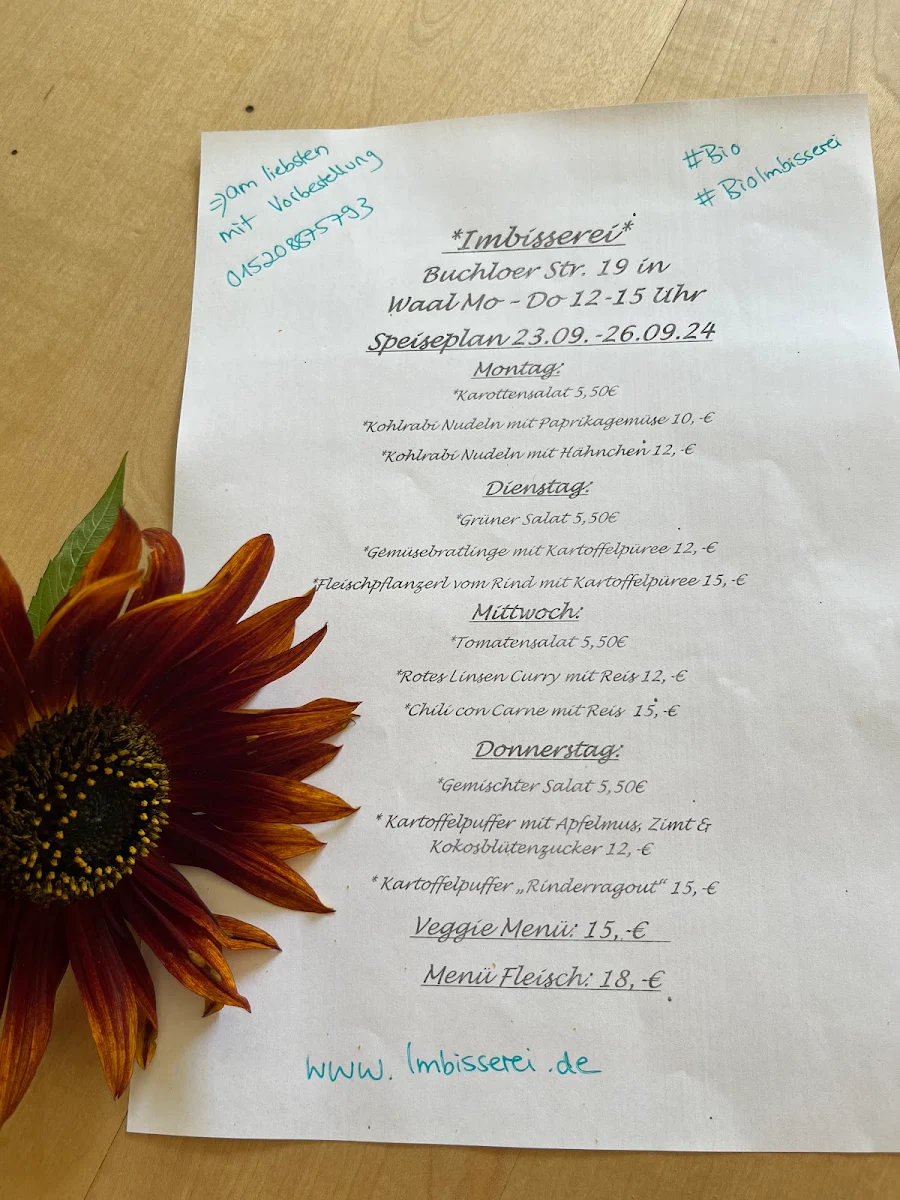 => am liebsten
mit Vorbestellung
015208875793
#Bio
#BioImbisserei
*Imbisserei*
Buchloer Str. 19 in
Waal Mo - Do 12-15 Uhr
Speiseplan 23.09.-26.09.24
Montag:
*Karottensalat 5,50€
*Kohlrabi Nudeln mit Paprikagemüse 10,-€
*Kohlrabi Nudeln mit Hähnchen 12,-€
Dienstag:
*Grüner Salat 5,50€
*Gemüsebratlinge mit Kartoffelpüree 12,-€
*Fleischpflanzerl vom Rind mit Kartoffelpüree 15,-€
Mittwoch:
*Tomatensalat 5,50€
*Rotes Linsen Curry mit Reis 12,-€
*Chili con Carne mit Reis 15,-€
Donnerstag:
*Gemischter Salat 5,50€
* Kartoffelpuffer mit Apfelmus, Zimt &
Kokosblütenzucker 12,-€
* Kartoffelpuffer „Rinderragout“ 15,-€
Veggie Menü: 15,-€
Menü Fleisch: 18,-€
www.Imbisserei.de